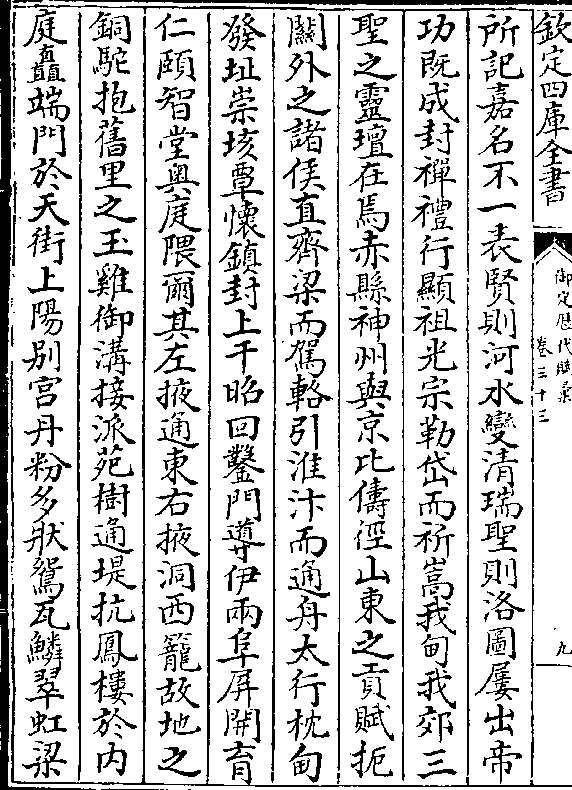 欽定四庫全書
御定歴代賦彙
卷三十三
九
所記嘉名不一表賢則河水變清瑞聖則洛圖屢出帝
功既成封禪禮行顯祖光宗勒岱而祈嵩我甸我郊三
聖之靈壇在焉赤縣神州與京比儔徑山東之貢賦扼
關外之諸侯直齊梁而駕輅引淮汴而通舟太行枕甸
發址崇垓覃懷鎮封上干昭回鑿門導伊兩阜屏開育
仁頤智堂奥庭隈爾其左掖通東右掖洞西籠故地之
銅駝抱舊里之玉雞御溝接派苑樹通堤抗鳳樓於内
庭矗端門於天街上陽别宮丹粉多狀鴛瓦鱗翠虹梁